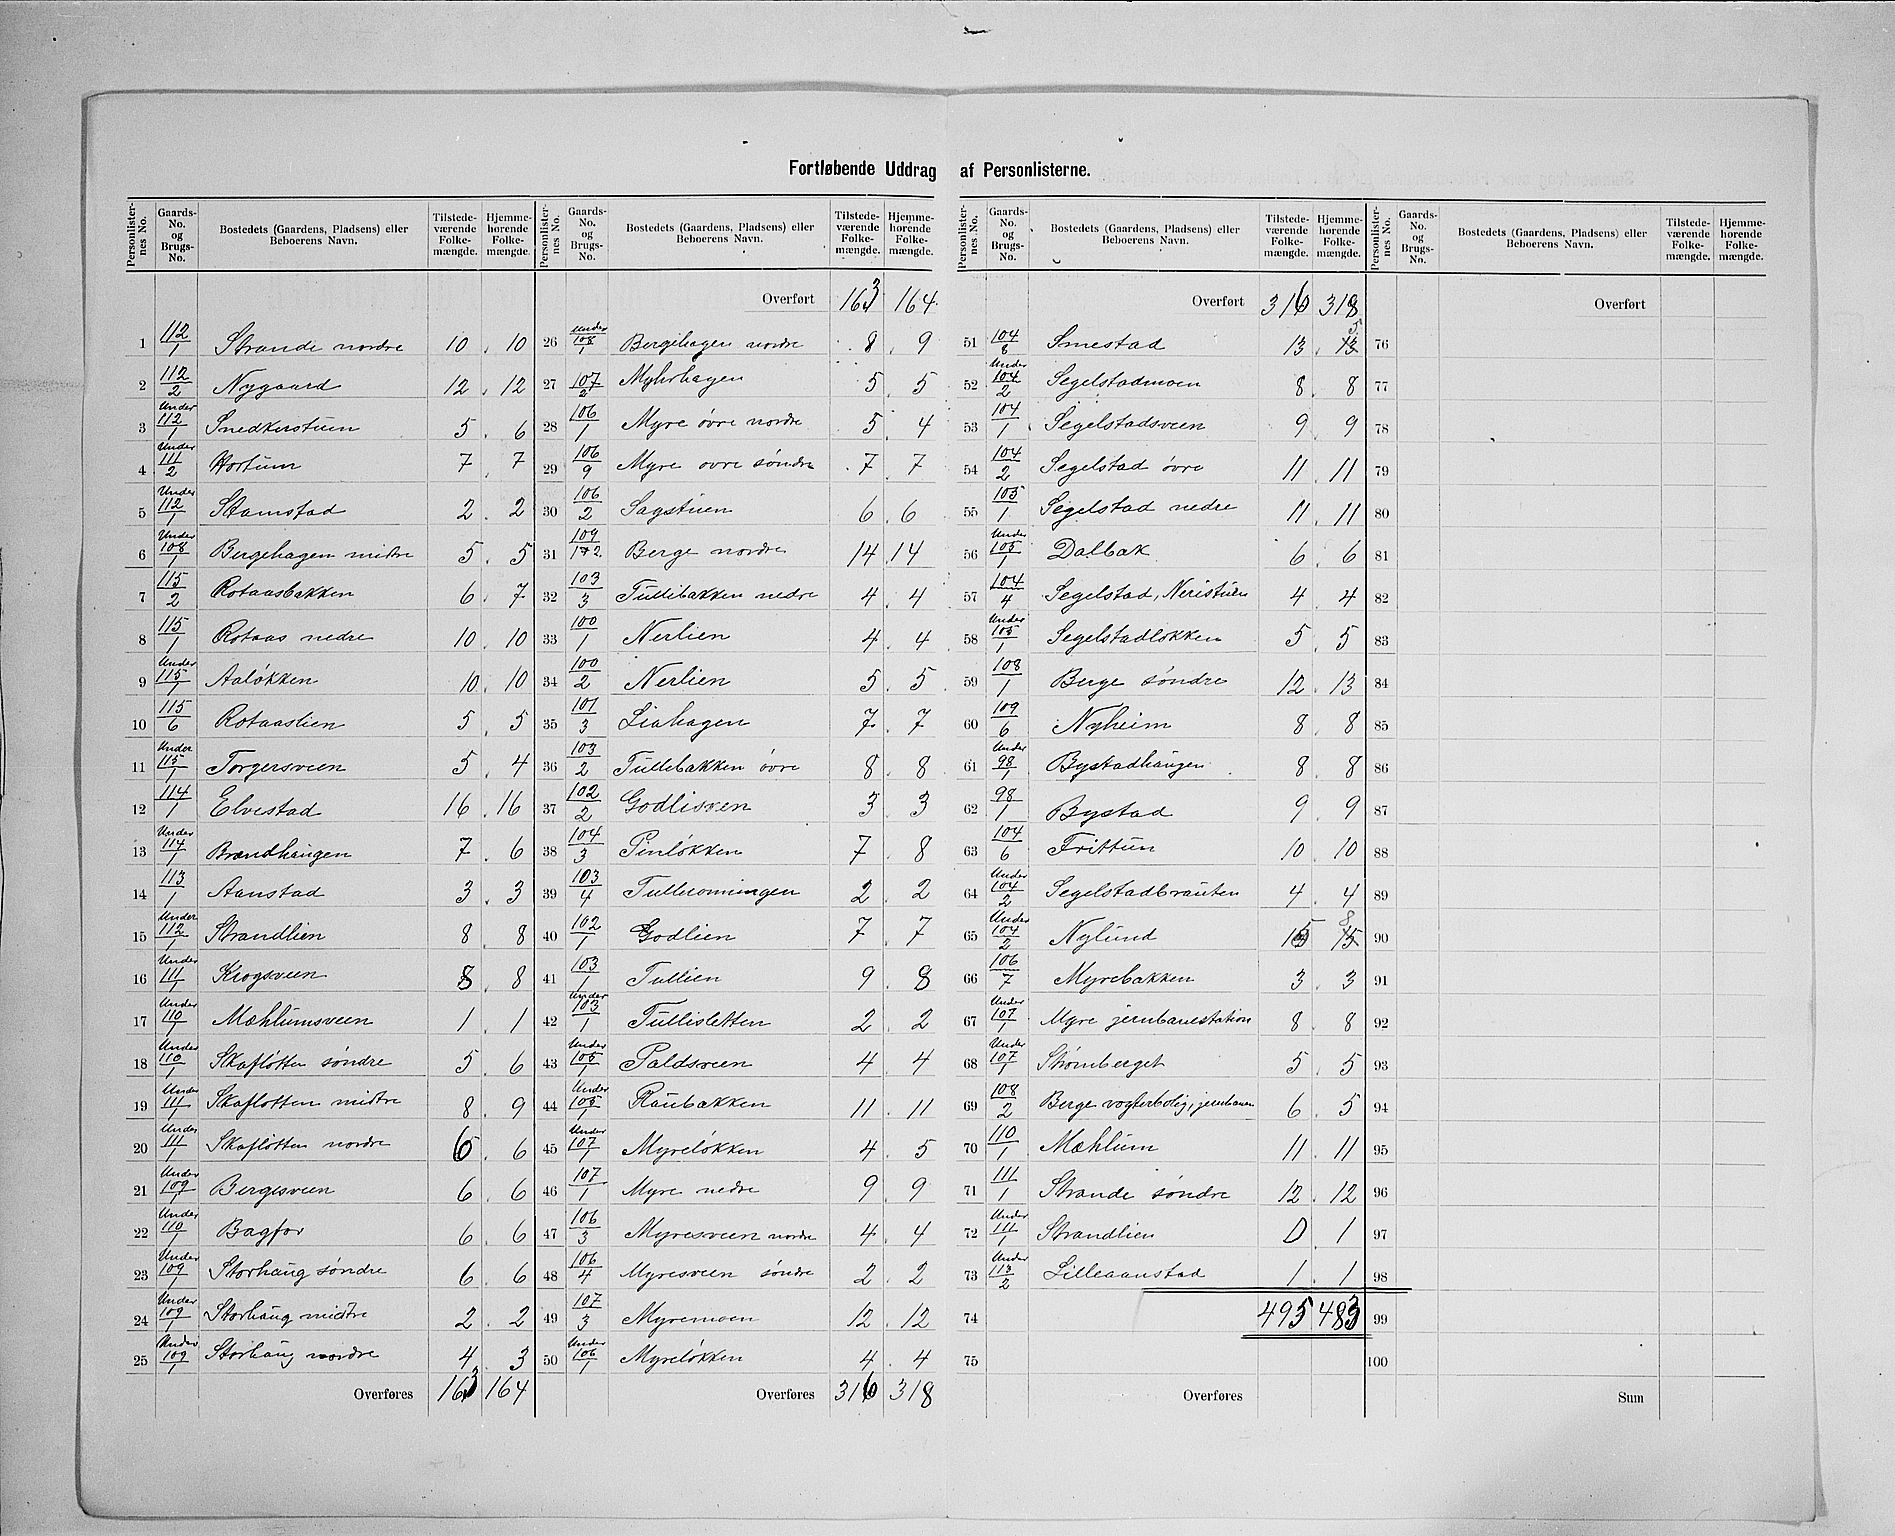 Fortløbende Uddrag af Personlisterne.
Personlister-nes No. | Gaards-No. og Brugs-No. | Bostedets (Gaardens, Pladsens) eller Beboerens Navn. | Tilstede-værende Folke-mængde. | Hjemme-hørende Folke-mængde.
1 112/1 Strande nordre 10. 10
2 112/2 Nygaard 12. 12
3 Under 112/1 Snedkerstuen 5. 6
4 Under 111/2 Hortum 7. 7
5 Under 112/1 Stamstad 2. 2
6 Under 108/1 Bergehagen midtre 5. 5
7 115/2 Rotaasbakken 6. 7
8 115/1 Rotaas nedre 10. 10
9 Under 115/1 Aaløkken 10. 10
10 115/6 Rotaaslien 5. 5
11 Under 115/1 Torgersveen 5. 4
12 114/1 Elvestad 16. 16
13 Under 114/1 Brændhaugen 7. 6
14 113/1 Aanstad 3. 3
15 Under 112/1 Strandlien 8. 8
16 Under 111/1 Krogsveen 8. 8
17 Under 110/1 Mæhlumsveen 1. 1
18 Under 110/1 Skafløtten søndre 5. 6
19 Under 111/1 Skafløtten midtre 8. 9
20 Under 111/1 Skafløtten nordre 6. 6
21 Under 109/1 Bergesveen 6. 6
22 Under 110/1 Bagfor 6. 6
23 Under 109/1 Storhaug søndre 6. 6
24 Under 109/1 Storhaug midtre 2. 2
25 Under 109/1 Storhaug nordre 4. 3
Overføres 163 164
Personlister-nes No. | Gaards-No. og Brugs-No. | Bostedets (Gaardens, Pladsens) eller Beboerens Navn. | Tilstede-værende Folke-mængde. | Hjemme-hørende Folke-mængde.
Overført 163 164
26 Under 108/1 Bergehagen nordre 8. 9
27 107/2 Myhrhagen 5. 5
28 106/1 Myre øvre nordre 5. 4
29 106/9 Myre øvre søndre 7. 7
30 106/2 Sagstuen 6. 6
31 109/1+2 Berge nordre 14. 14
32 103/3 Tullibakken nedre 4. 4
33 100/1 Nerlien 4. 4
34 100/2 Nerlien 5. 5
35 101/3 Liahagen 7. 7
36 103/2 Tullibakken øvre 8. 8
37 102/2 Godlisveen 3. 3
38 104/3 Pinløkken 7. 8
39 103/4 Tullironningen 2. 2
40 102/1 Godlien 7. 7
41 103/1 Tullien 9. 8
42 Under 103/1 Tullisletten 2. 2
43 Under 105/1 Paldsveen 4. 4
44 Under 105/1 Raubakken 11. 11
45 Under 107/1 Myreløkken 4. 5
46 107/1 Myre nedre 9. 9
47 106/3 Myresveen nordre 4. 4
48 106/4 Myresveen søndre 2. 2
49 107/3 Myremoen 12. 12
50 Under 106/1 Myreløkken 4. 4
Overføres 316 318
Personlister-nes No. | Gaards-No. og Brugs-No. | Bostedets (Gaardens, Pladsens) eller Beboerens Navn. | Tilstede-værende Folke-mængde. | Hjemme-hørende Folke-mængde.
Overført 316 318
51 104/8 Smestad 13. 13 5
52 Under 104/2 Segelstadmoen 8. 8
53 104/1 Segelstadsveen 9. 9
54 104/2 Segelstad øvre 11. 11
55 105/1 Segelstad nedre 11. 11
56 Under 105/1 Dalbak 6. 6
57 104/4 Segelstad, Neristuen 4. 4
58 Under 105/1 Segelstadløkken 5. 5
59 108/1 Berge søndre 12. 13
60 109/6 Nyheim 8. 8
61 Under 98/1 Bystadhaugen 8. 8
62 98/1 Bystad 9. 9
63 104/6 Frittun 10. 10
64 Under 104/2 Segelstadbrauten 4. 4
65 Under 104/2 Nylund 15 15 8
66 106/7 Myrebakken 3. 3
67 Under 107/1 Myre jernbanestation 8. 8
68 Under 107/1 Strømberget 5. 5
69 108/2 Berge vogterbolig, jernbanen 6. 5
70 110/1 Mæhlum 11. 11
71 111/1 Strande søndre 12. 12
72 Under 111/1 Strandlien 0. 1
73 Under 113/2 Lilleaanstad 1. 1
74 495 483
75
Overføres
Personlister-nes No. | Gaards-No. og Brugs-No. | Bostedets (Gaardens, Pladsens) eller Beboerens Navn. | Tilstede-værende Folke-mængde. | Hjemme-hørende Folke-mængde.
Overført
76
77
78
79
80
81
82
83
84
85
86
87
88
89
90
91
92
93
94
95
96
97
98
99
100
Sum